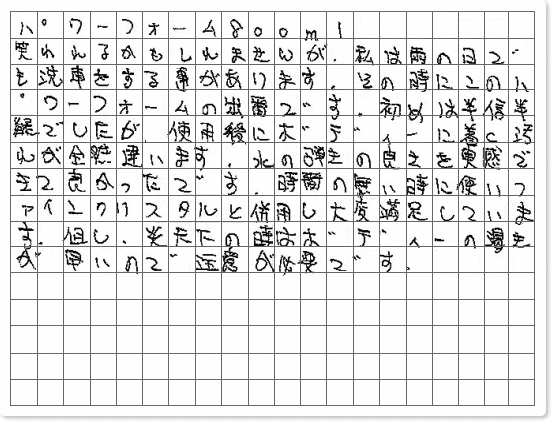 パワーフォーム800ml
笑われるかもしれませんが、私は雨の日で
も洗車をする事があります。その時にこのハ
゜ワーフォームの出番です。初めは半信半
疑でしたが 使用後にボディーに着く汚
れが全然違います。水の弾きの良さを実感で
きて良かったです。時間の無い時に使いフ
ァインクリスタルと併用し大変満足していま
す。但し、炎天下の時はボディーの渇き
が早いので注意が必要です。